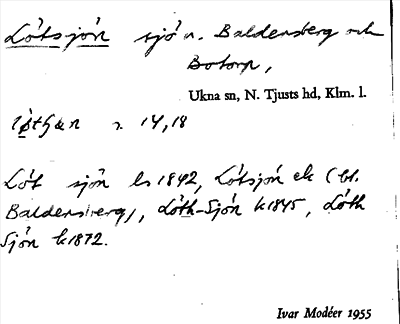 Lötsjön sjö n. Baldersberg och
Botorp,
Ukna sn, N. Tjusts hd, Klm. l.
14, 18
Löt sjön ls 1842, Lötsjön ek (bl.
Baldersberg), Löth-Sjön k 1845, Löth
Sjön k 1872.
Ivar Modéer 1955